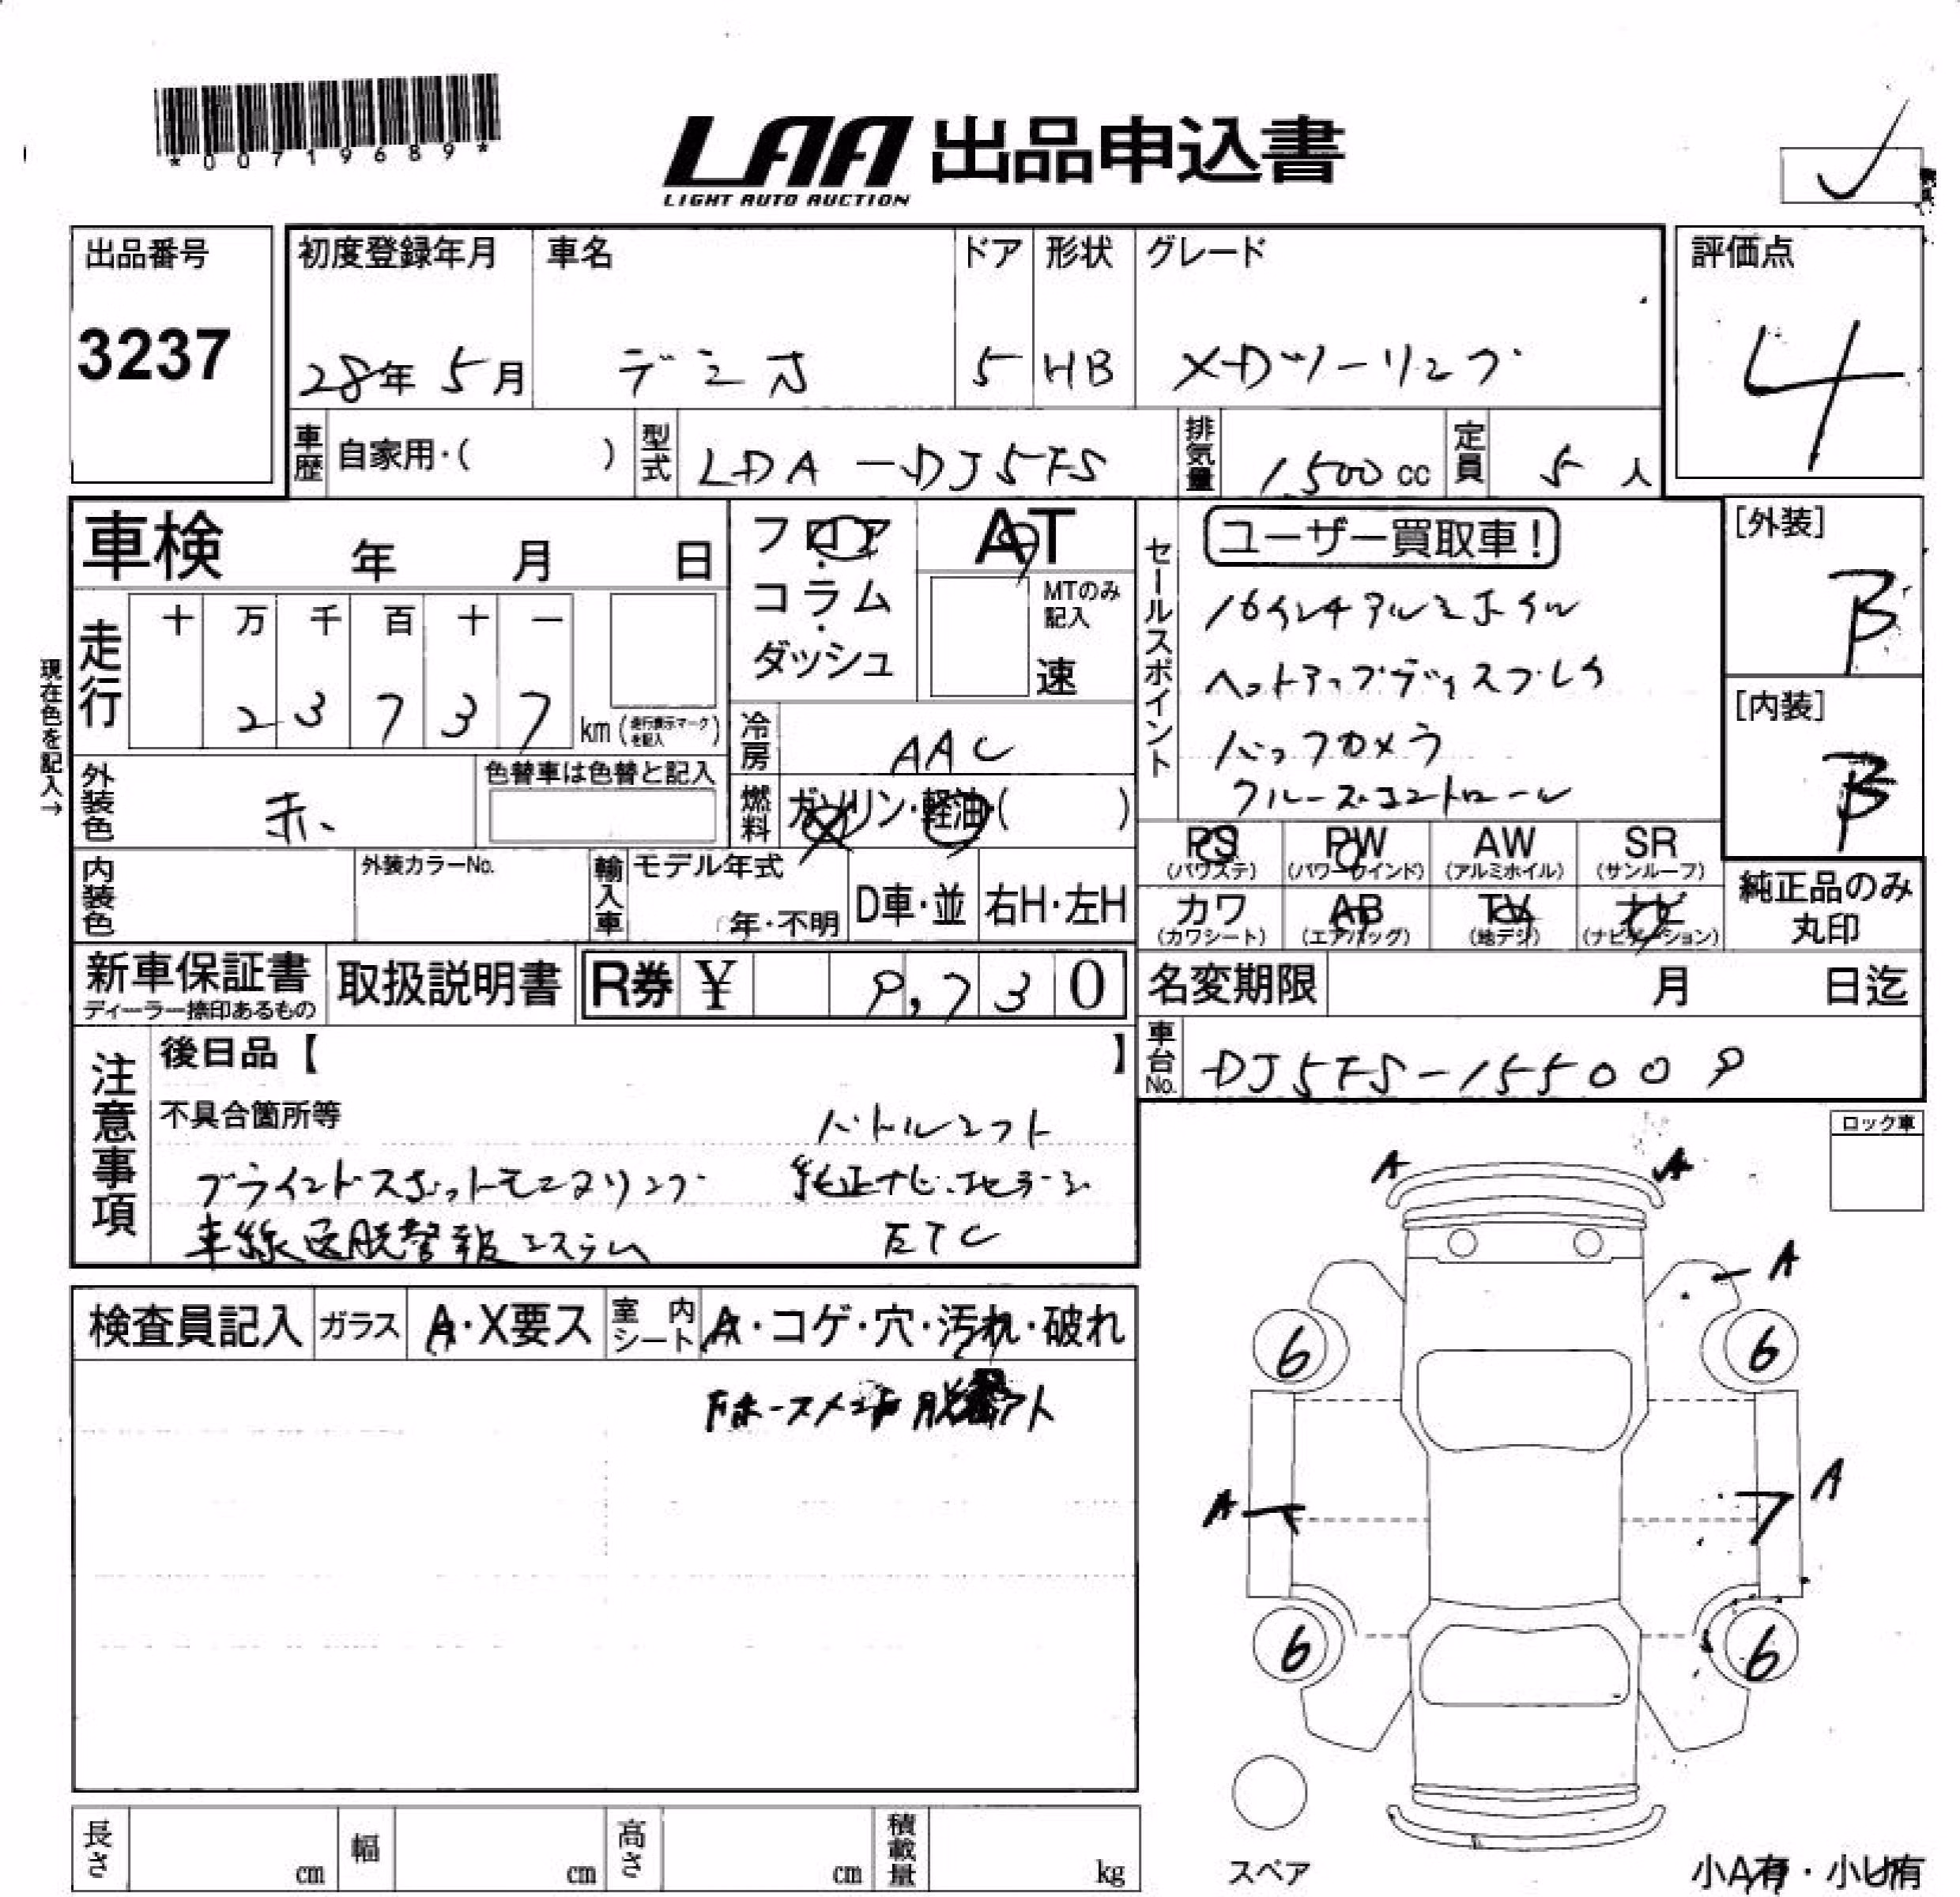 *00719689*
LAA 出品申込書
LIGHT AUTO AUCTION
出品番号 初度登録年月 車名 ドア 形状 グレード 評価点
3237 28年 5月 デミオ 5 HB XDツーリング 4
車歴 自家用・( ) 型式 LDA-DJ5FS 排気量 1500cc 定員 5人
車検 年 月 日 フロア・コラム・ダッシュ AT MTのみ記入 速
セールスポイント ユーザー買取車!
16インチアルミホイル
ヘットアップディスプレイ
バックカメラ
クルーズコントロール
[外装] B
[内装] B
現在色を記入→
走行 十 万 千 百 十 一
2 3 7 3 7 km (走行表示マークを記入)
冷房 AAC
外装色 赤 色替車は色替と記入 燃料 ガソリン・軽油・( )
PS (パワステ) PW (パワーウインド) AW (アルミホイル) SR (サンルーフ)
カワ (カワシート) AB (エアバッグ) TV (地デジ) ナビ (ナビゲーション)
純正品のみ丸印
内装色 外装カラーNo. 輸入車 モデル年式 年・不明 D車・並 右H・左H
新車保証書 ディーラー捺印あるもの 取扱説明書 R券 ¥ 9,730 名変期限 月 日迄
車台No. DJ5FS-155009
注意事項 後日品【 】
不具合箇所等 パドルシフト
ブラインドスポットモニタリング 純正ナビ・地デジ
車線逸脱警報システム ETC
ロック車
検査員記入 ガラス A・X要ス 室内シート A・コゲ・穴・汚れ・破れ
A A
A
6 6
A A
6 6
長さ cm 幅 cm 高さ cm 積載量 kg
スペア
小A有・小U有